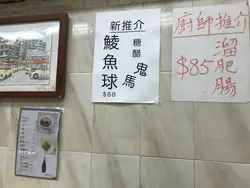 新推介
糖醋鬼馬
鯪魚球
$68
廚師推介
溜肥腸
$85